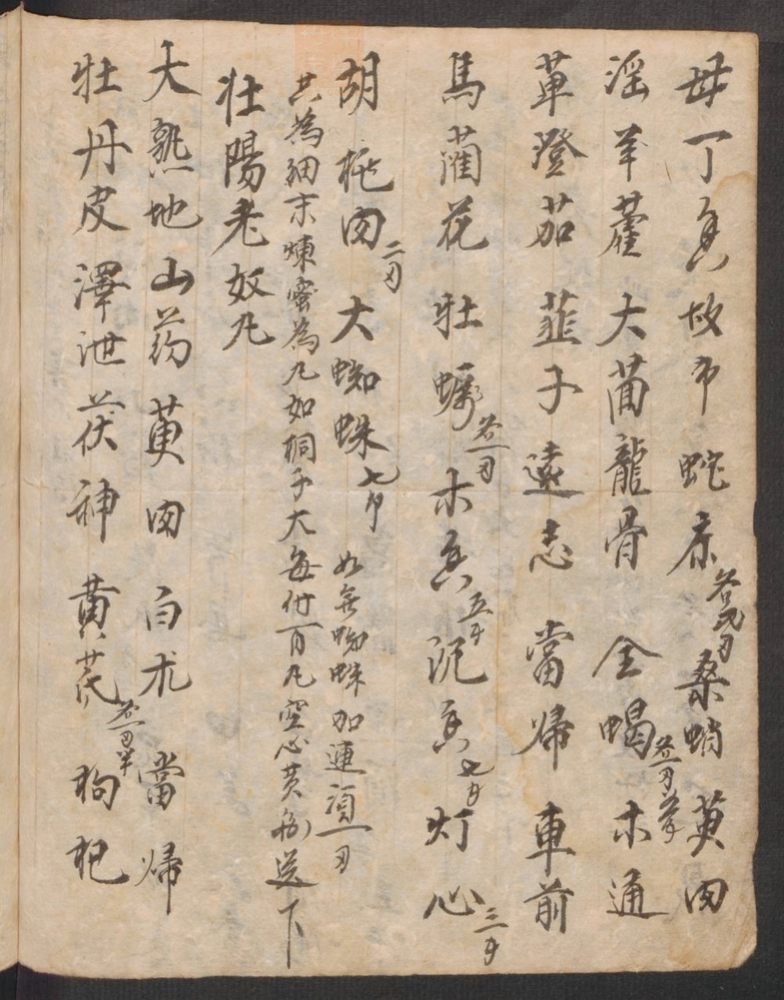 母丁香故布蛇床各二刃桑螵萸肉
淫羊藿大茴龍骨全蝎各一刃木通
蓽澄茄韮子遠志當帰車前
馬藺花牡蠣各一刃木香五个沉香七个灯心三个
胡桃肉二刃大蜘蛛七个如無蜘蛛加蓮須一刃
共為細末煉蜜為凡如桐子大每付百凡空心黄送下
壮陽老奴凡
大熟地山药萸肉白朮當帰
牡丹皮澤泄茯神黄芪各一刃半枸杞